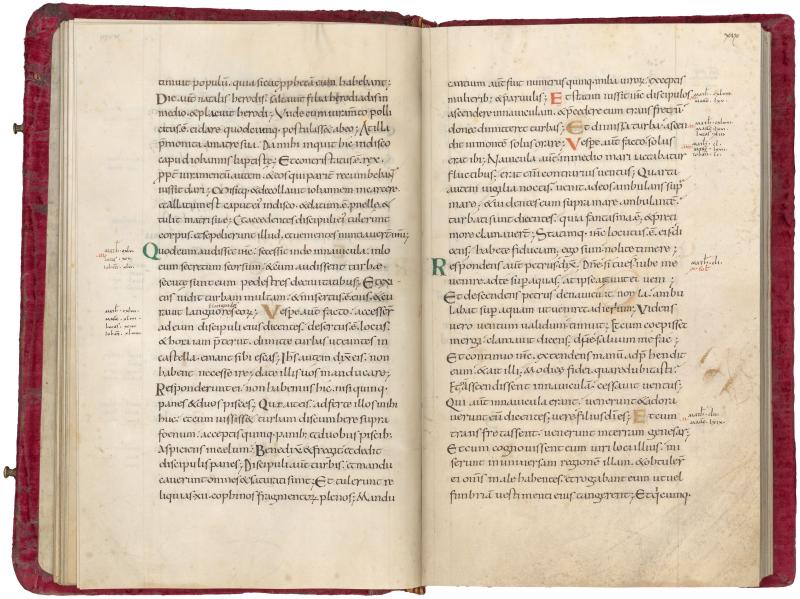 timuit populū. quia sicut pphetā eum habebant;
Die autē natalis herodis. saltauit filia herodiadis in
medio. & placuit herodi; Unde cum iuram̄to polli
citus ē. ei dare quodcunq; postulass& ab eo; At illa
p̄monita a matre sua; Da mihi inquit hic in disco
caput iohannis baptistę; Et contristatus ē. rex.
ppt̄ iuramentū autem & eos qui pariter recumbebant
iussit dari; & decollauit iohannem in carcere.
& allatum est caput ei' in disco. & datum ē. puellę. &
tulit matri suę; Et accedentes discipuli ei' tulerunt
corpus. & sepelierunt illud. et uenientes nuntiauerunt
Quod cum audisset ihc. secessit inde in nauicula. in locū
desertum seorsum. & cum audissent turbae.
secutę sunt eum pedestres de ciuitatibus; Et exi
ens uidit turbam multam. & misertus ē. eis. & cu
rauit languores eorū; Uespe autē facto. accesser̄
ad eum discipuli ei' dicentes. desertus ē. locus.
& hora iam p̄terit. dimitte turbas ut euntes in
castella. emant sibi escas; Ihs autem dix̄ eis. non
habent necesse ire; date illis uos manducare;
Responderunt ei. non habemus hic. nisi quinq.
panes & duos pisces; Qui ait eis. adferte illos mihi
huc. et cum iussiss& turbam discumbere supra
foenum. acceptis quinq. panib; et duobus piscib;
Aspiciens in celum. Benedix̄ & fregit. et dedit
discipulis panes; Discipuli autē turbis. et mandu
cauerunt omnes & saturati sunt; Et tulerunt re
liquias .xii. cophinos fragmentorū plenos; Mandu
cantium autē fuit numerus quinq. milia uiror. exceptis
mulierib; & paruulis; Et statim iussit ihc discipulos
ascendere in nauiculam. & p̄cedere eum trans fretū
donec dimitteret turbas; Et dimissa turba. ascen
dit in monte solus orare; Uespe autē facto. solus
erat ibi; Nauicula autē in medio mari iactabatur
fluctibus. erat enī contrarius uentus; Quarta
autem uigilia noctis. uenit ad eos ambulans sup̄
mare; & uidentes eum supra mare ambulantē.
turbati sunt dicentes. quia fantasma ē. & p̄ ti
more clamauer̄; Statimq. ihc locutus ē. eis di
cens. habete fiduciam. ego sum nolite timere;
Respondens autē petrus dix̄. Dn̄e si tu es iube me
uenire ad te sup̄ aquas. at ipse ait ei ueni;
Et descendens petrus de nauicula. ambu
labat sup̄ aquam ut ueniret ad iesum; Uidens
uero uentum ualidum timuit; Et cum coepisset
mergi. clamauit dicens. dn̄e saluum me fac;
Et continuo ihc. extendens manū. adp̄hendit
eum. & ait illi; Modicę fidei. quare dubitasti;
Et cū ascendissent in nauiculā. cessauit uentus;
Qui autē in nauicula erant. uenerunt & adora
uerunt eū dicentes. uere filius dī es; Et cum
transfretassent. uenerunt in terram genesar;
Et cum cognouissent eum uiri loci illius. mi
serunt in uniuersam regionē illam. & obtuler̄
ei om̄s male habentes. et rogabant eum ut uel
fimbriā uestimenti eius tangerent; Et qͥcumq.